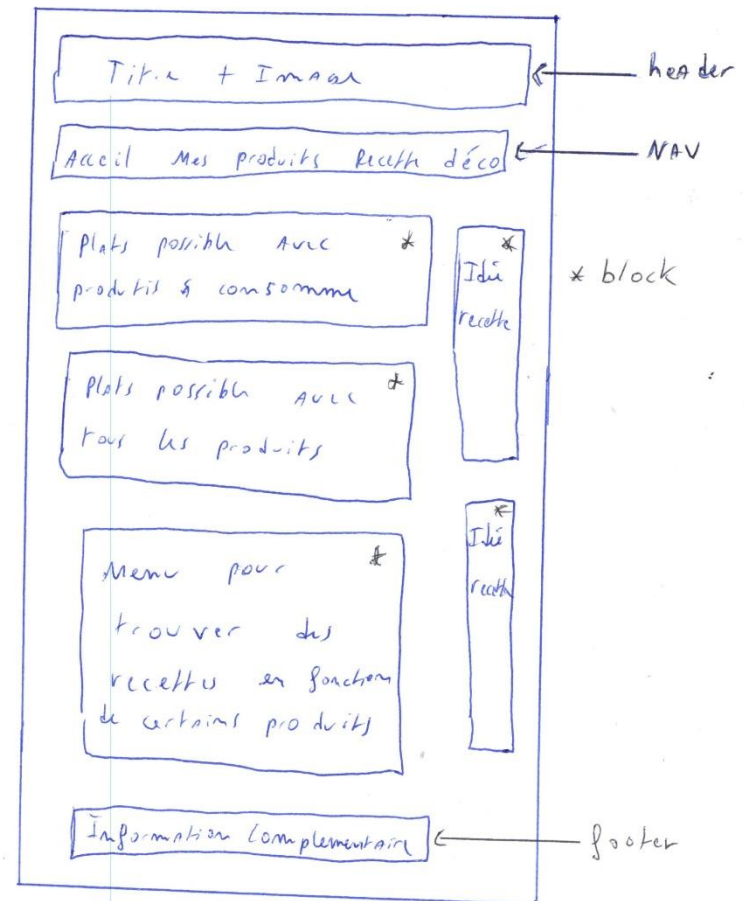 Titre + Image
header
Acceil Mes produits Recette déco
NAV
Plats possible Avec *
produtis à consomme
* Idée
recette
* block
Plats possible Avec *
tous les produits
Menu pour *
trouver des
recettes en fonction
de certains produits
* Idée
recette
Information Complementaire
footer